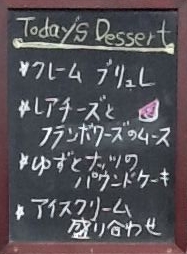 Today's Dessert
★クレーム ブリュレ
★レアチーズと
フランボワーズのムース
★ゆずとナッツの
パウンドケーキ
★アイスクリーム
盛り合わせ